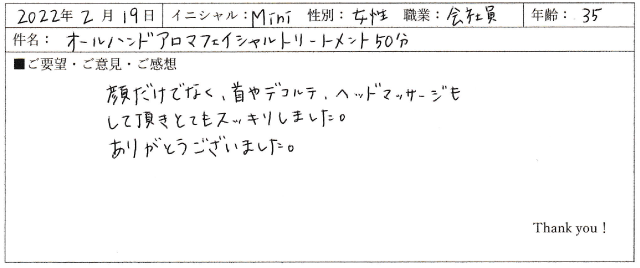 2022年2月19日 イニシャル：Mini 性別：女性 職業：会社員 年齢：35
件名：オールハンドアロマフェイシャルトリートメント50分
■ご要望・ご意見・ご感想
顔だけでなく、首やデコルテ、ヘッドマッサージも
して頂きとてもスッキリしました。
ありがとうございました。
Thank you！